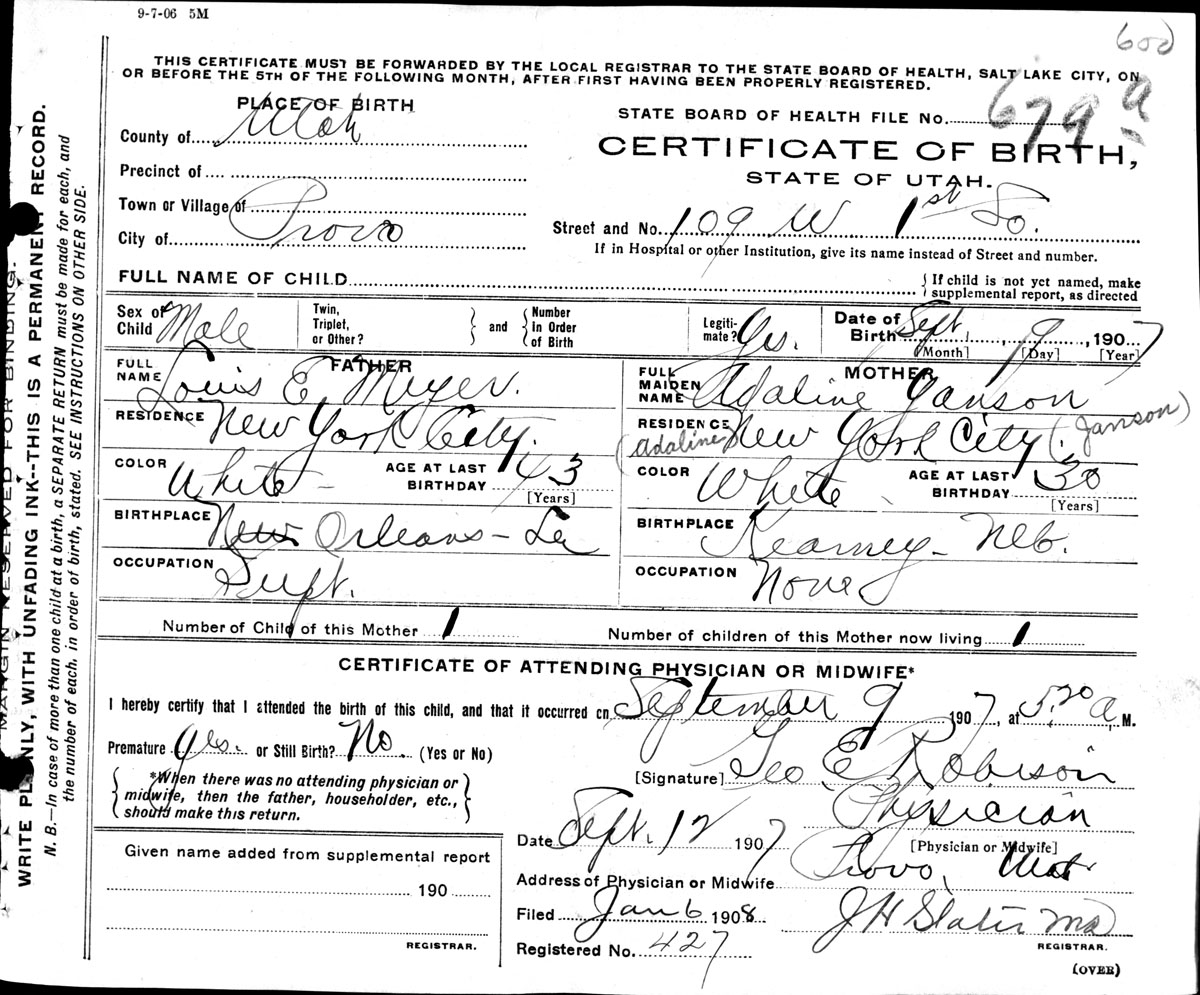 9-7-06 5M
60d
THIS CERTIFICATE MUST BE FORWARDED BY THE LOCAL REGISTRAR TO THE STATE BOARD OF HEALTH, SALT LAKE CITY, ON
OR BEFORE THE 5TH OF THE FOLLOWING MONTH, AFTER FIRST HAVING BEEN PROPERLY REGISTERED.
PLACE OF BIRTH
STATE BOARD OF HEALTH FILE No. 679 a
County of Utah
CERTIFICATE OF BIRTH,
STATE OF UTAH.
Precinct of
Town or Village of
City of Provo
Street and No. 109 W 1st So.
If in Hospital or other Institution, give its name instead of Street and number.
FULL NAME OF CHILD
If child is not yet named, make
supplemental report, as directed
Sex of Child Male
Twin, Triplet, or Other?
and
Number In Order of Birth
Legiti-mate? Yes.
Date of Birth Sept. 9, 1907
[Month] [Day] [Year]
FATHER
FULL NAME Louis E. Meyer.
RESIDENCE New York City.
COLOR White - AGE AT LAST BIRTHDAY 43
[Years]
BIRTHPLACE New Orleans - La
OCCUPATION Supt.
MOTHER
FULL MAIDEN NAME Adaline Yanson
RESIDENCE New York City.
(Adaline Janson)
COLOR White AGE AT LAST BIRTHDAY 30
[Years]
BIRTHPLACE Kearney - Neb.
OCCUPATION None
Number of Child of this Mother 1
Number of children of this Mother now living 1
CERTIFICATE OF ATTENDING PHYSICIAN OR MIDWIFE*
I hereby certify that I attended the birth of this child, and that it occurred on September 9 1907, at 5:20 a M.
Premature Yes. or Still Birth? No. (Yes or No)
*When there was no attending physician or
midwife, then the father, householder, etc.,
should make this return.
[Signature] Geo E Robison
Physician
[Physician or Midwife]
Date Sept. 12 1907
Address of Physician or Midwife Provo, Utah
Filed Jan 6 1908
J H Slater MD
REGISTRAR.
Registered No. 427
(OVER)
Given name added from supplemental report
190
REGISTRAR.
MARGIN RESERVED FOR BINDING.
WRITE PLAINLY, WITH UNFADING INK--THIS IS A PERMANENT RECORD.
N. B.—In case of more than one child at a birth, a SEPARATE RETURN must be made for each, and
the number of each, in order of birth, stated. SEE INSTRUCTIONS ON OTHER SIDE.